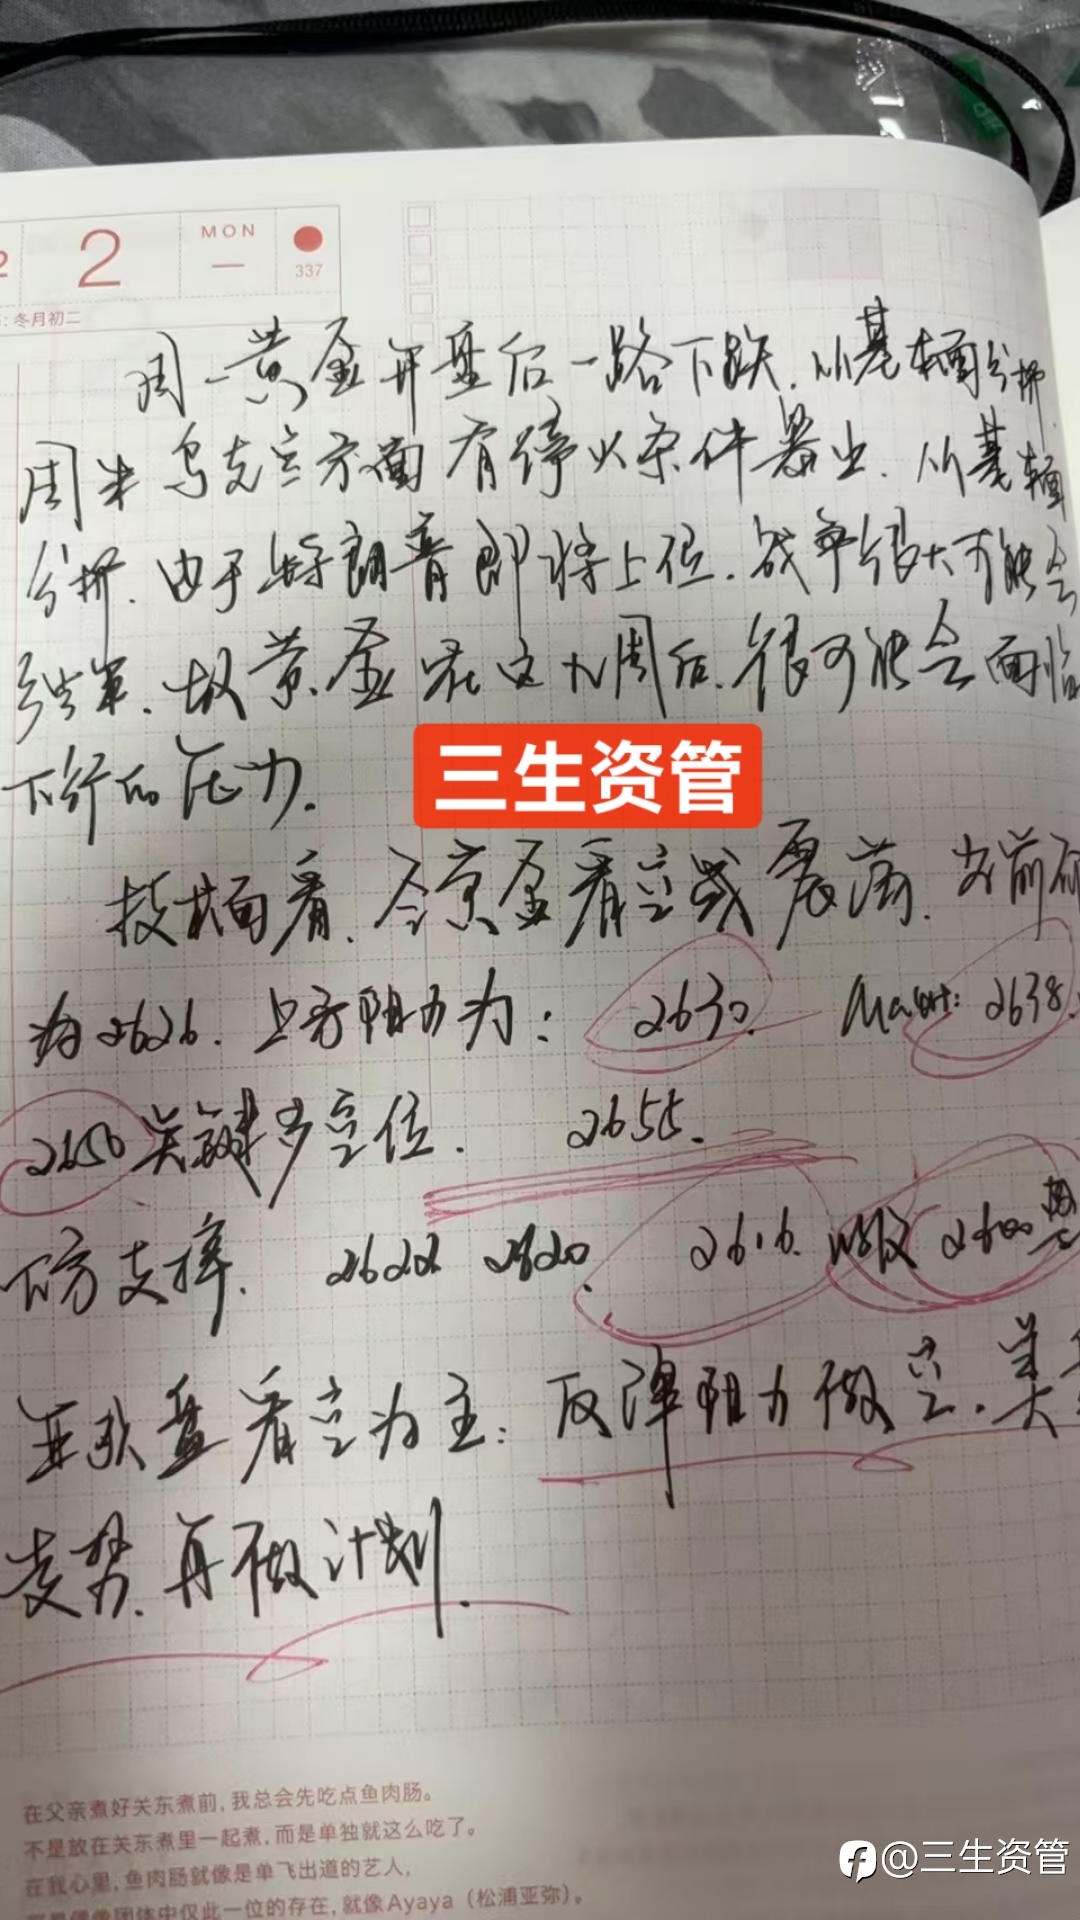 2
2
MON
一
337
冬月初二
周一黄金开盘后一路下跌.从基本面分析
周末乌克兰方面有停火条件暴出.从基本面
分析.由于特朗普即将上位.战争很大可能会
结束.故黄金在这九周后.很可能会面临
下行的压力.
三生资管
技术面看.今黄金看空或震荡.当前
为2626.上方阻力为:2630. 2638.
2650关键多空位. 2655.
下方支撑. 2622 2620. 2616. 2600
亚欧盘看空为主:反弹阻力做空.美
走势.再做计划.
在父亲煮好关东煮前,我总会先吃点鱼肉肠。
不是放在关东煮里一起煮,而是单独就这么吃了。
在我心里,鱼肉肠就像是单飞出道的艺人,
偶像团体中仅此一位的存在,就像Ayaya(松浦亚弥)。
@三生资管